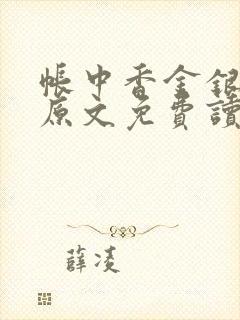 帳中香金銀
原文免費讀
薛凌